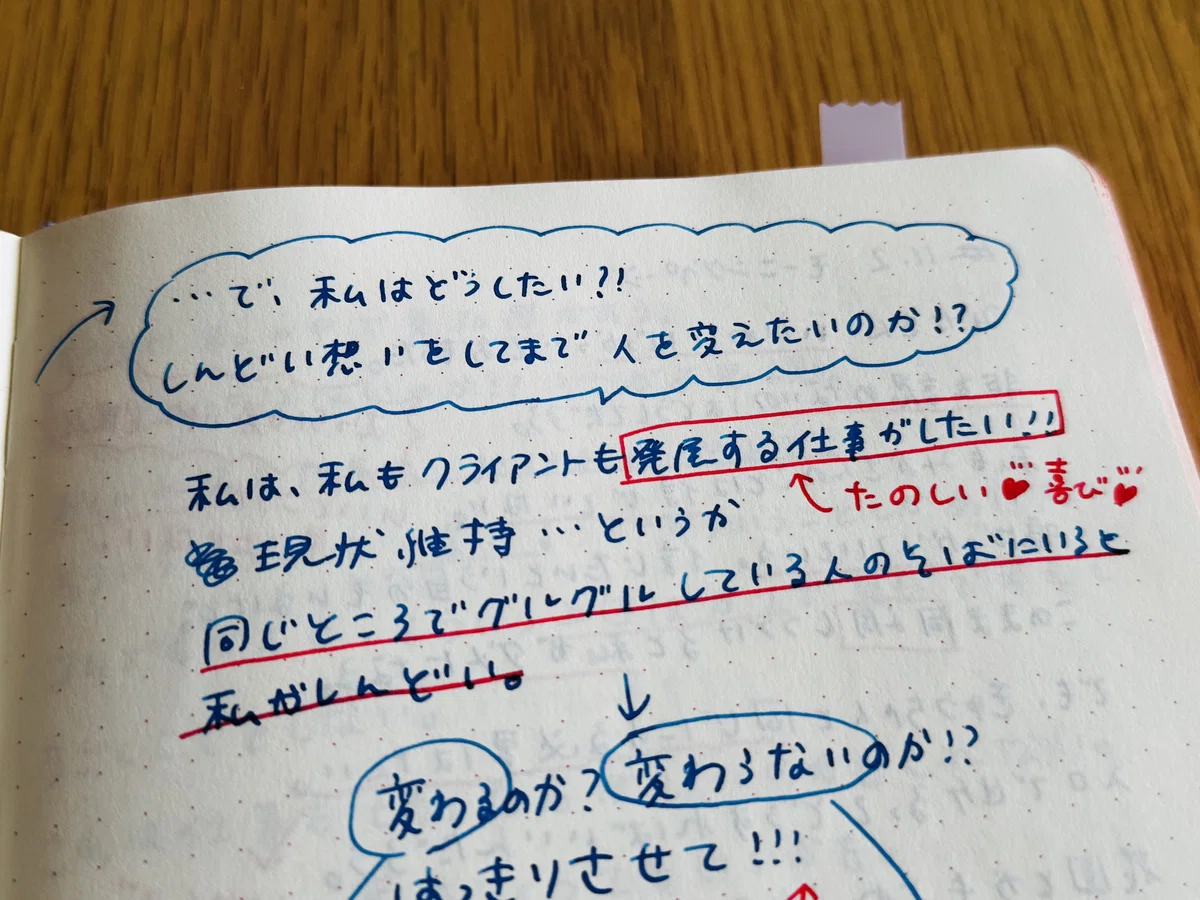 …で、私はどうしたい?!
しんどい想いをしてまで人を変えたいのか!?
私は、私もクライアントも発展する仕事がしたい!!
たのしい♥喜び♥
現状維持…というか
同じところでグルグルしている人のそばにいると
私がしんどい。
↓
変わるのか?変わらないのか!?
はっきりさせて!!!